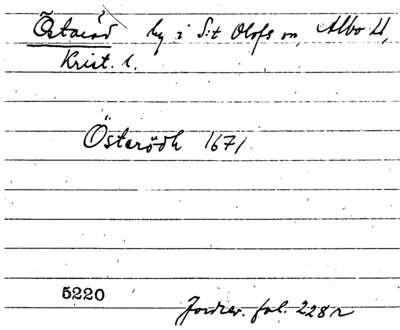 Örtaröd by i S:t Olofs sn, Albo H,
Krist. l.
Österödh 1671
5220
Jordrev. fol. 228 r